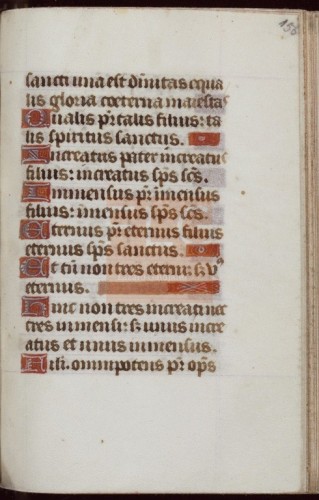 158
sancti una est diuinitas equa
lis gloria coeterna maiestas
Qualis pr̄ talis filius: ta
lis spiritus sanctus.
Increatus pater increatus
filius: increatus sp̄s sc̄s.
Inmensus pr̄ īmensus
filius: īmensus sp̄s sc̄s.
Eternus pr̄ eternus filius
eternus sp̄s sanctus.
Et tn̄ non tres eterni: s; vꝰ
eternus.
Sicut non tres increati nec
tres inmensi: s; unus incre
atus et unus inmensus.
omnipotens pr̄ op̄s